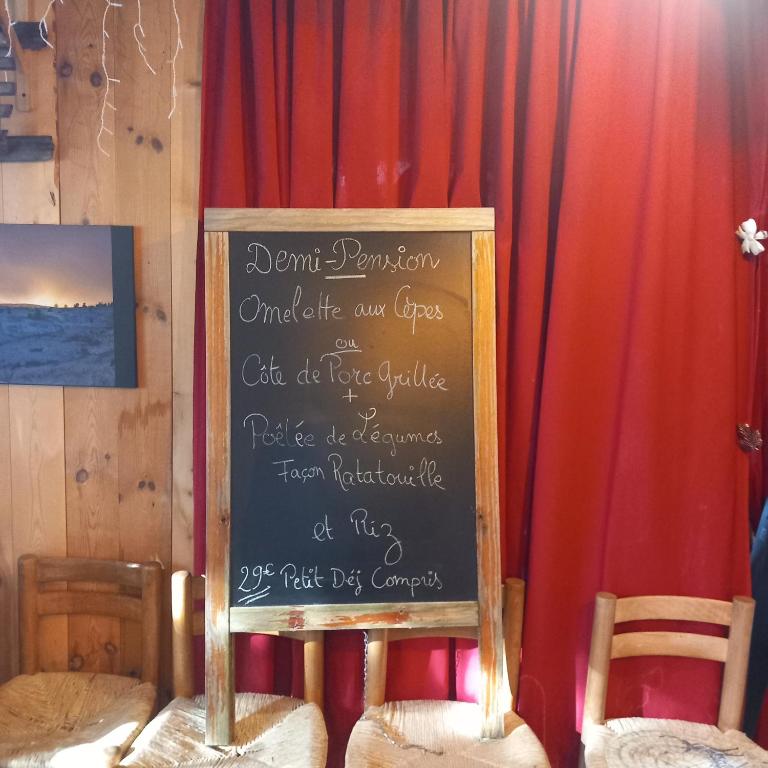 Demi-Pension
Omelette aux Cèpes
ou
Côte de Porc Grillée
+
Poêlée de Légumes
Façon Ratatouille
et Riz
29€ Petit Déj Compris